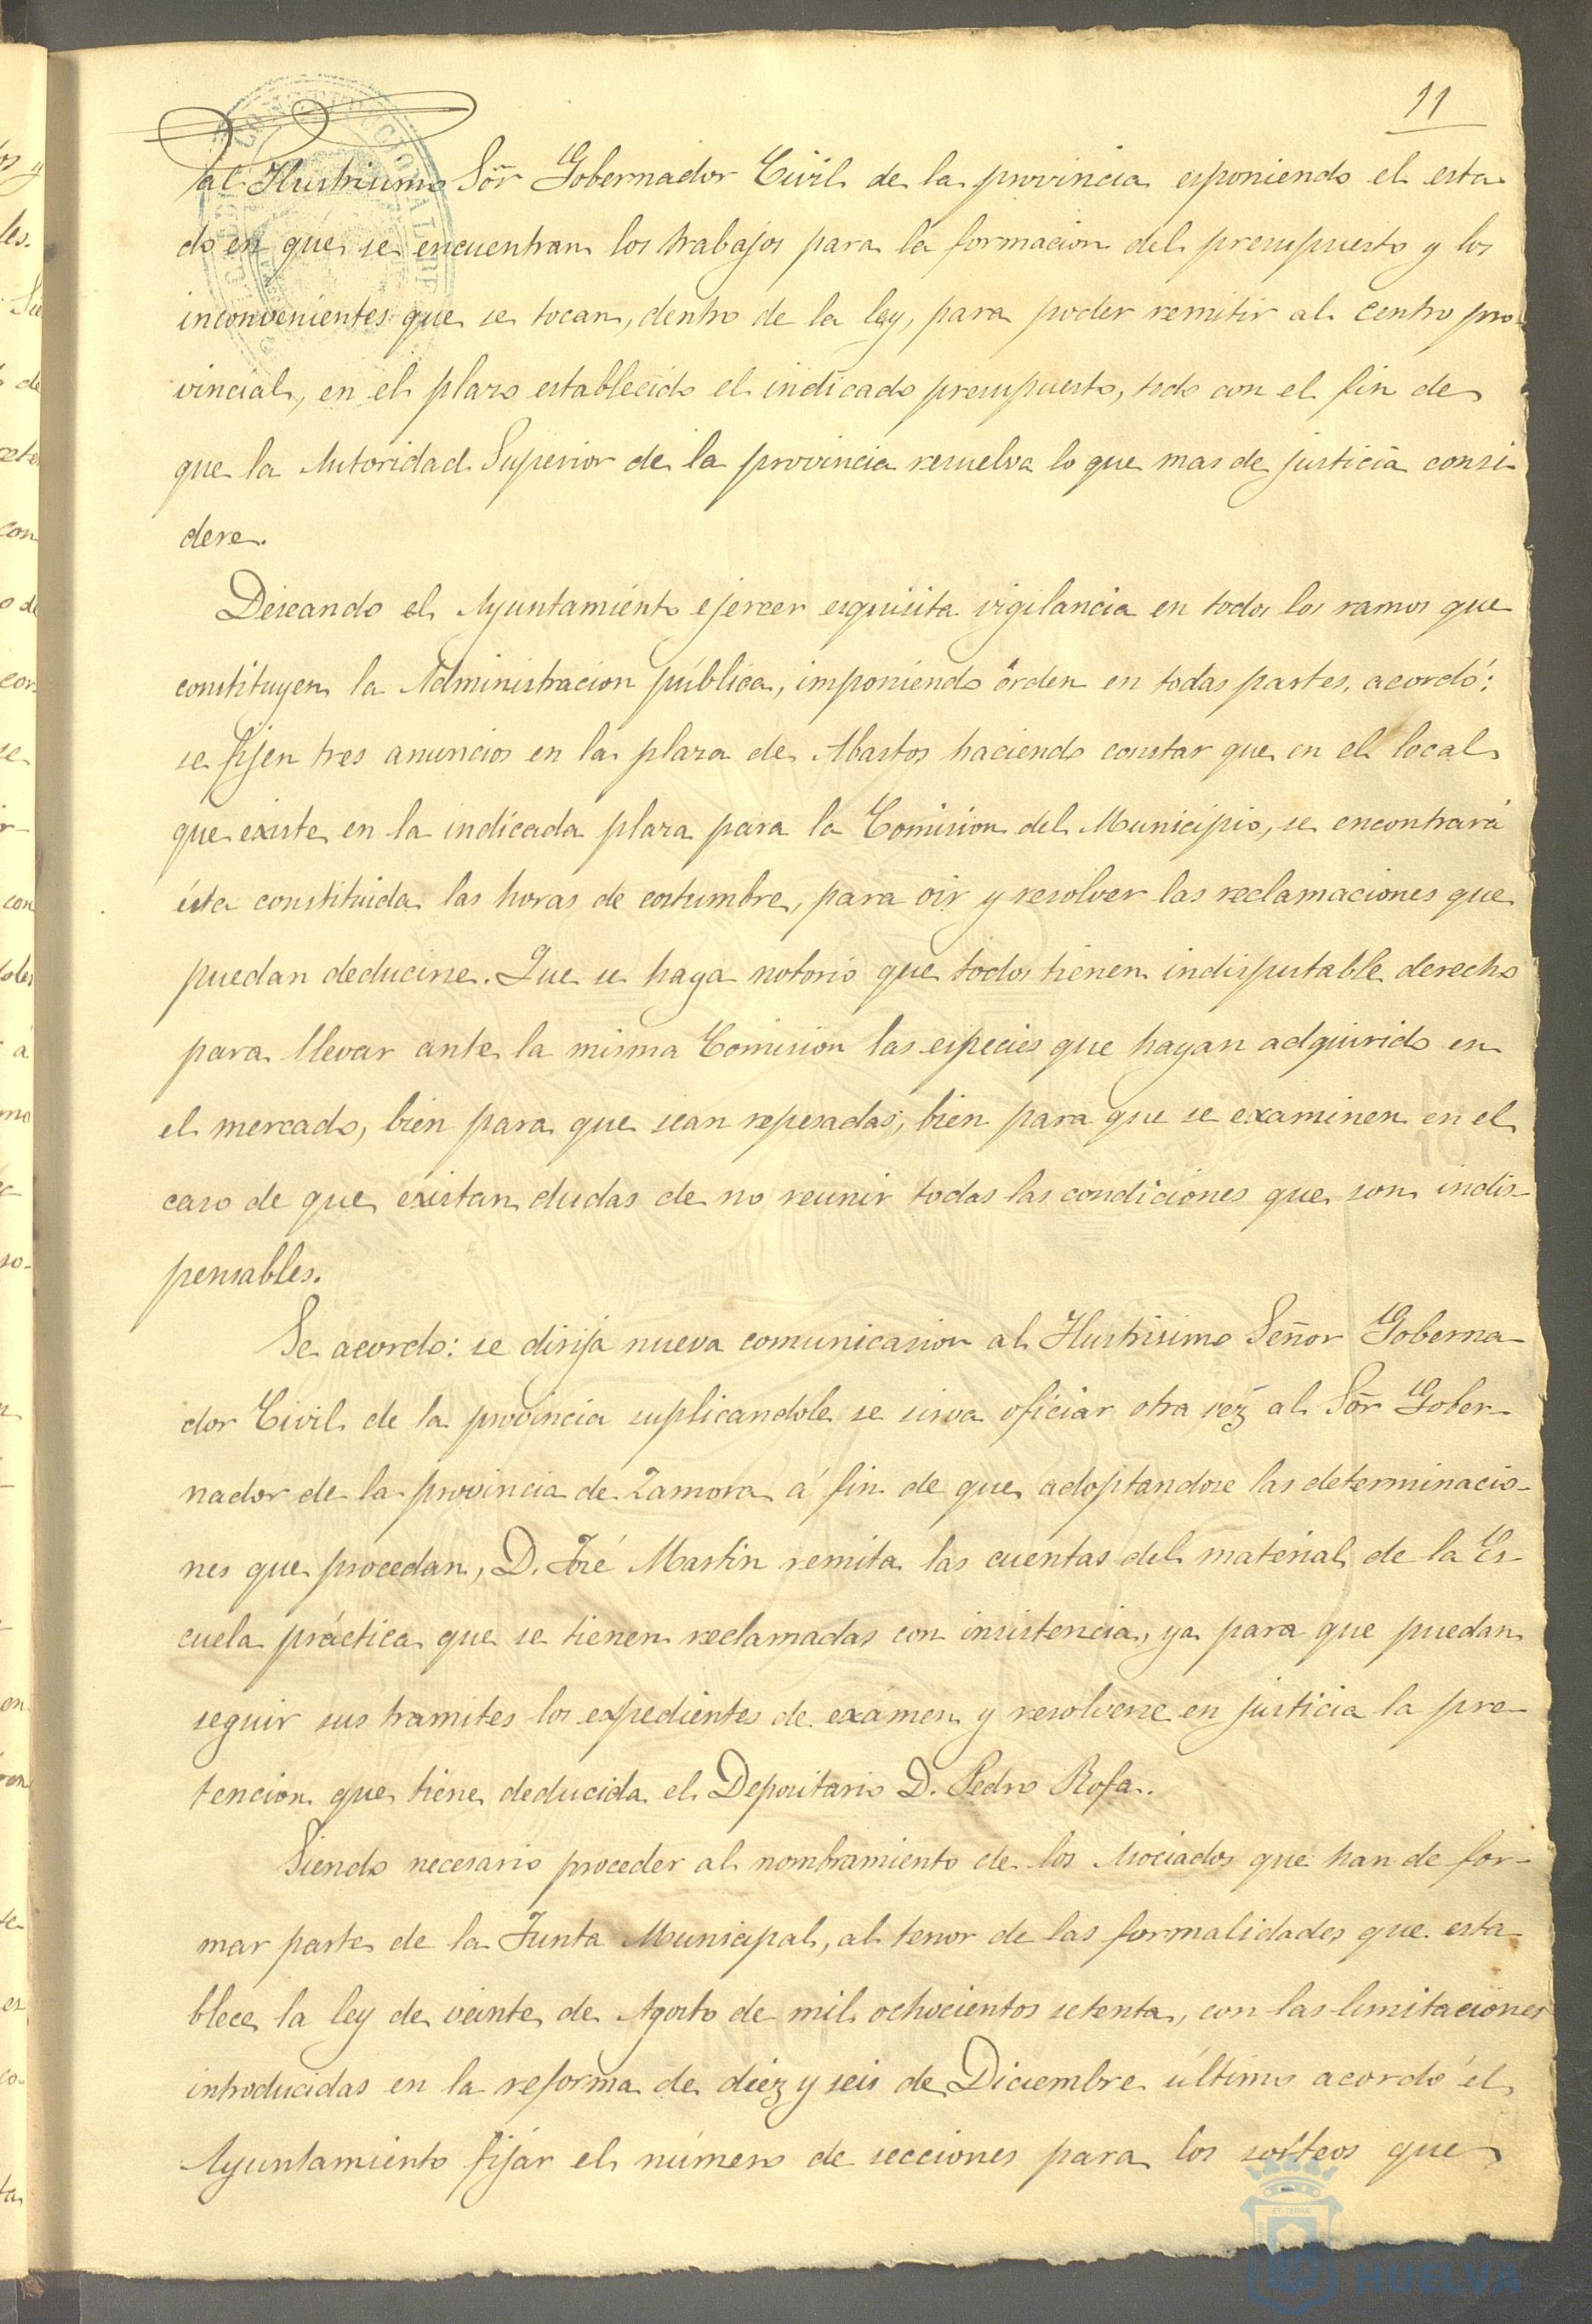 11
al Ilustrisimo Sõr Gobernador Civil de la provincia esponiendo el esta-
do en que se encuentran los trabajos para la formacion del presupuesto y los
inconvenientes que se tocan, dentro de la ley, para poder remitir al centro pro-
vincial, en el plazo establecido el indicado presupuesto, todo con el fin de
que la Autoridad Superior de la provincia resuelva lo que mas de justicia consi-
dere.
Deseando el Ayuntamiento ejercer esquisita vigilancia en todos los ramos que
constituyen la Administracion pública, imponiendo órden en todas partes, acordó:
se fijen tres anuncios en la plaza de Abastos haciendo constar que en el local
que existe en la indicada plaza para la Comision del Municipio, se encontrará
ésta constituida las horas de costumbre, para oir y resolver las reclamaciones que
puedan deducirse. Que se haga notorio que todos tienen indisputable derecho
para llevar ante la misma Comision las especies que hayan adquirido en
el mercado, bien para que sean repesadas, bien para que se examinen en el
caso de que existan dudas de no reunir todas las condiciones que son indis-
pensables.
Se acordo: se dirija nueva comunicasion al Ilustrisimo Señor Goberna-
dor Civil de la provincia suplicandole se sirva oficiar otra vez al Sõr Gober-
nador de la provincia de Zamora á fin de que adoptandose las determinacio-
nes que procedan, D. José Martin remita las cuentas del material de la Es-
cuela práctica que se tienen reclamadas con insistencia, ya para que puedan
seguir sus tramites los expedientes de examen y resolverse en justicia la pre-
tencion que tiene deducida el Depositario D. Pedro Rofa.
Siendo necesario proceder al nombramiento de los Asociados que han de for-
mar parte de la Junta Municipal, al tenor de las formalidades que esta-
blece la ley de veinte de Agosto de mil ochocientos setenta, con las limitaciones
introducidas en la reforma de diez y seis de Diciembre último acordó el
Ayuntamiento fijar el número de secciones para los sorteos que
HUELVA